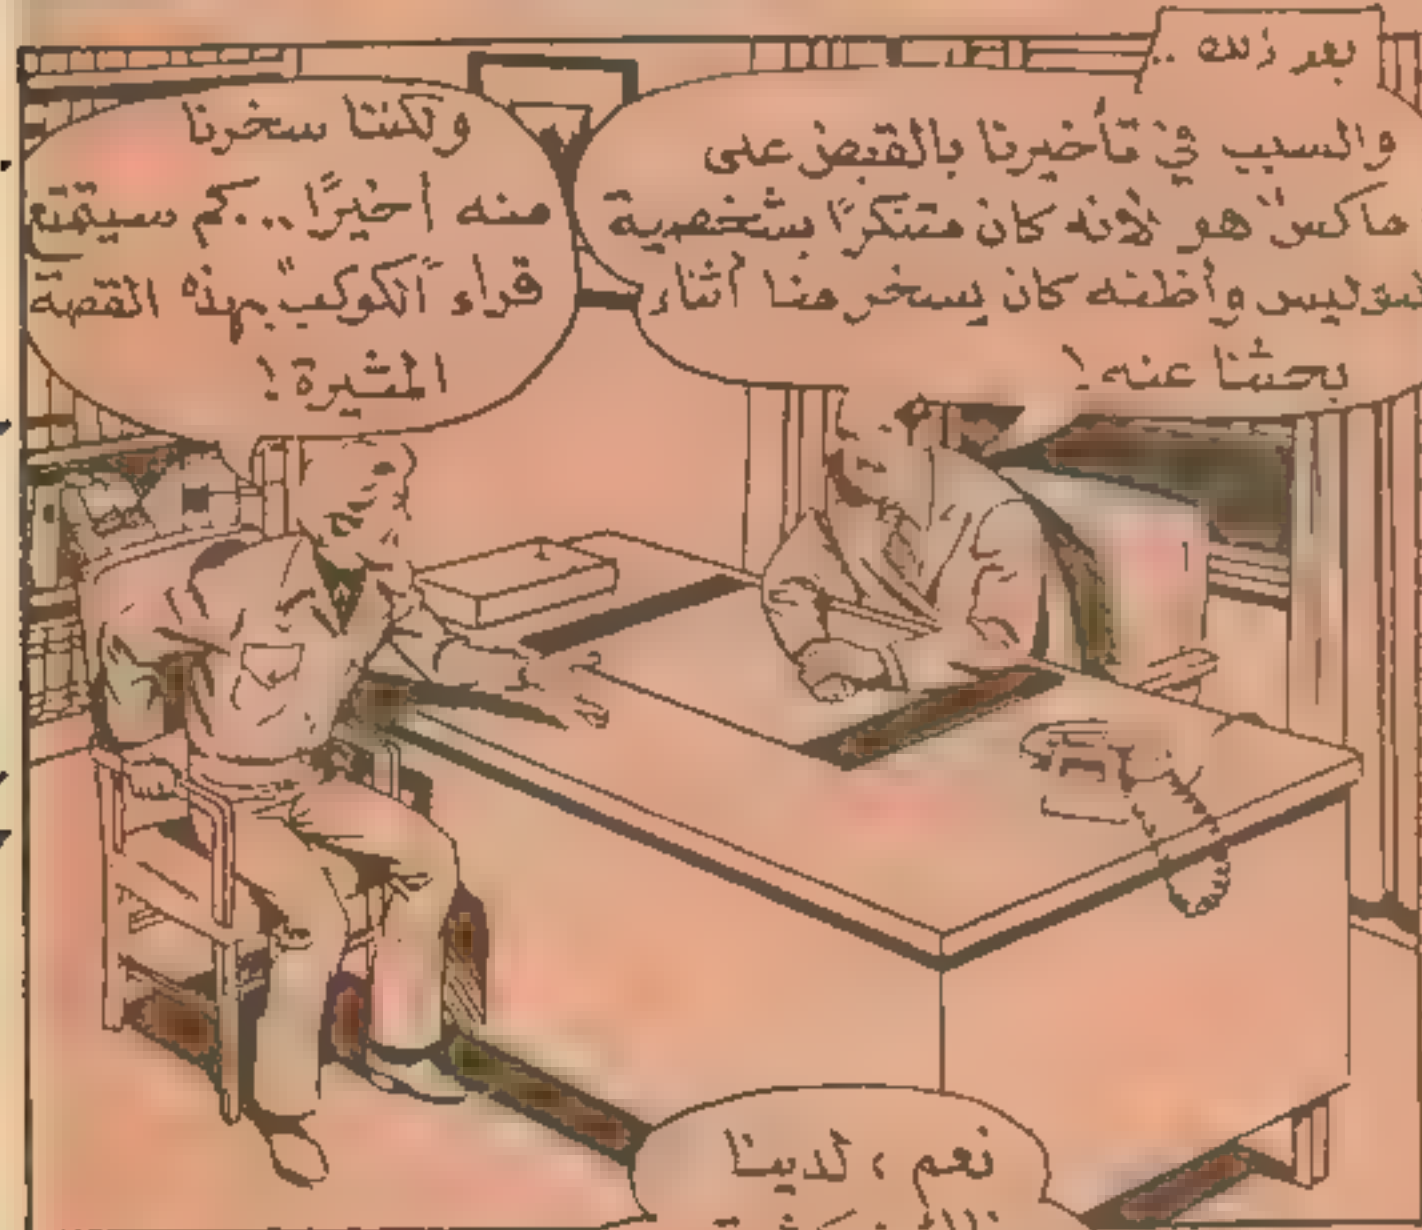 بعد ذلك ..
والسبب في تأخيرنا بالقبض على
ماكس" هو لأنه كان متنكرًا بشخصية
بوليس وأظنه كان يسخر منا أثناء
بحثنا عنه!
ولكننا سخرنا
منه أخيرًا... كم سيتمتع
قراء "الكوكب" بهذه القصة
المثيرة!
نعم، لدينا